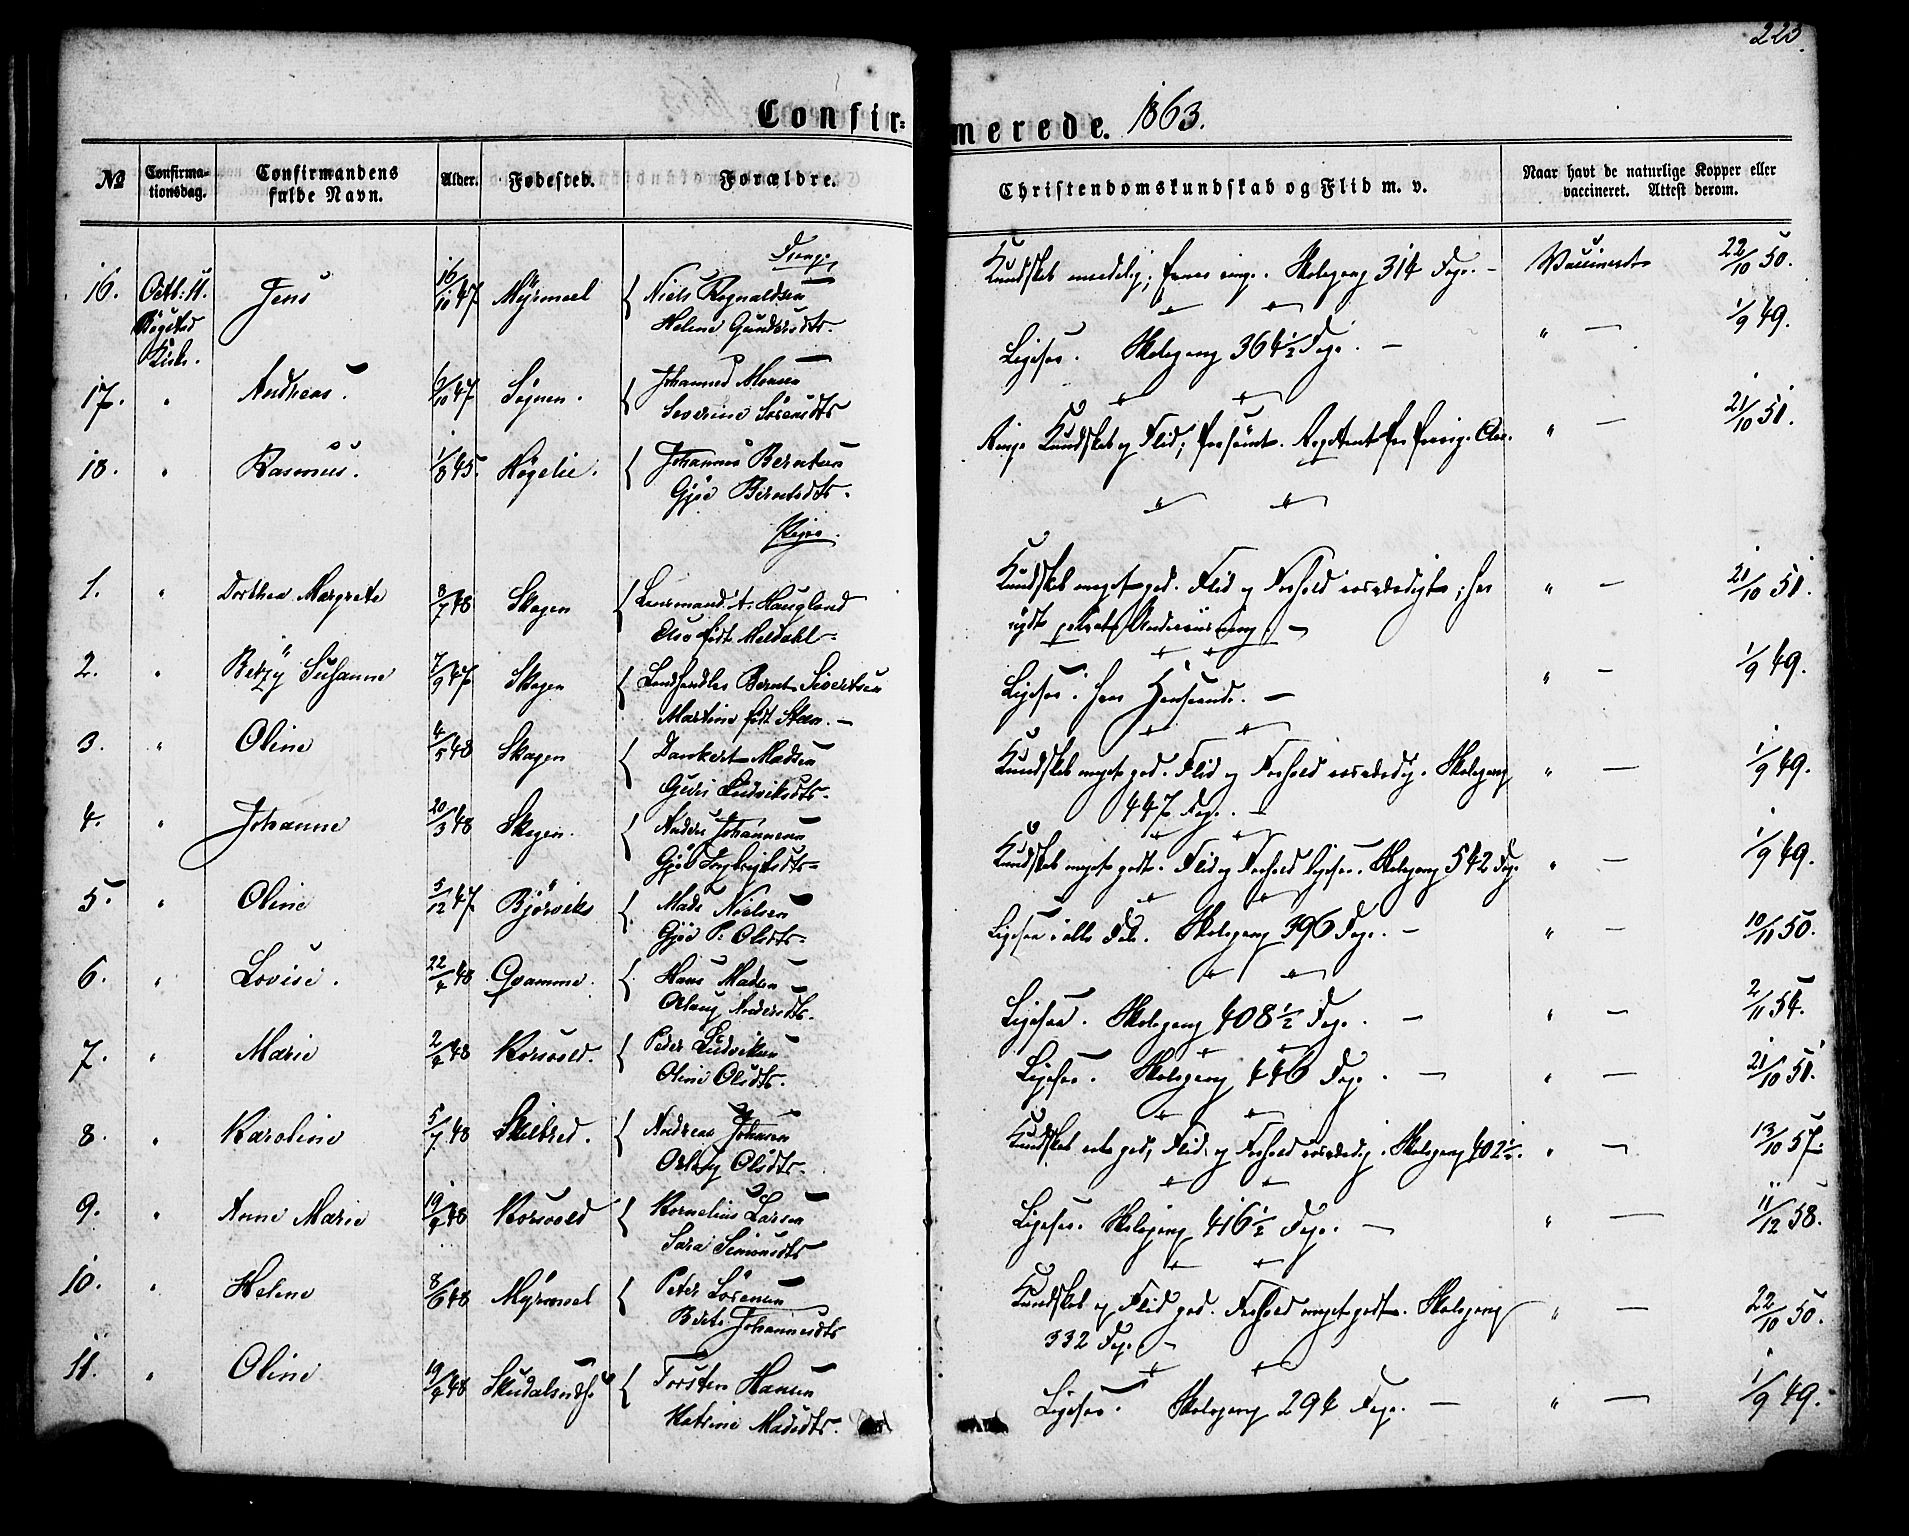 223.
Confir=
merede. 1863.
No
Confirma=
tionsdag.
Confirmandens
fulde Navn.
Alder.
Fødested.
Forældre.
Christendomskundskab og Flid m. v.
Naar havt de naturlige Kopper eller
vaccineret. Attest derom.
Drenge
16. Octb: 11. Jens 16/10 47 Myrmæl { Niels Rognaldsen Kundskab Skolegang 314 Dage. – Vaccineret 22/10 50.
Bøgsted Helene Gundersdtr.
Kirke.
17. " Andreas. 6/10 47 Sognen. { Johannes Monsen Ligesaa. Skolegang 364½ Dage. – " — 1/9 49.
Severine Sørensdtr
18. " Rasmus. 1/8 45. Høgelie. { Johannes Berntsen Ringe Kundskab og Flid; " — 21/10 51.
Gjøe Berntsdtr.
Piger.
1. " Dorthea Margrete 8/7 48 Skagen { Lensmand A. Haugland Kundskab meget god. Flid og Forhold roesværdigt; har " — 21/10 51.
født Meldahl – nydt privat Underviisning. –
2. " Betzy Susanne 7/9 47 Skagen { Landhandler Bernt Sivertsen Ligesaa. – " – 1/9 49.
Martine født Steen. –
3. " Oline 4/5 48 Skagen { Dankert Madsen Kundskab meget god. Flid og Forhold roesværdig. Skolegang " — 1/9 49.
Guri Ludviksdtr. 447 Dage. –
4. " Johanne 20/3 48 Skagen. { Anders Johannesen Kundskab meget godt. Flid og Forhold ligesaa. Skolegang 542 Dage " — 1/9 49.
Gjøe Ingbrigtsdtr –
5. " Oline 5/12 47 Bjørviks { Mads Nielsen Ligesaa i alle Dele. Skolegang 396 Dage. – " — 10/11 50.
Gjøe P. Olsdtr.
6. " Lovise. 22/4 48 Qvamme. { Hans Madsen Ligesaa. Skolegang 408½ Dage. — " — 2/11 54.
Oslaug Andersdtr.
7. " Marie 2/4 48 Korsvold. { Peder Ludviksen Ligesaa. Skolegang 446 Dage. — " — 21/10 51.
Oline Olsdtr.
8. " Karoline 5/7 48 Skilbred. { Andreas Johnsen Kundskab god, Flid og Forhold roesværdig. Skolegang 402½. " – 13/10 57.
Oslaug Olsdtr.
9. " Anne Marie 19/4 48 Korsvold { Kornelius Larsen Ligesaa. Skolegang 416½ Dage. — " — 11/12 58.
Sara Simonsdtr
10. " Helene 8/6 48 Myrmæl { Peter Sørensen Kundskab og Flid god. Forhold meget godt. Skolegang " — 22/10 50.
Berte Johannesdtr 332 Dage. –
11. " Oline 19/4 48 { Torsten Hansen Ligesaa. Skolegang 294 Dage. — " — 1/9 49.
Katrine Madsdtr.